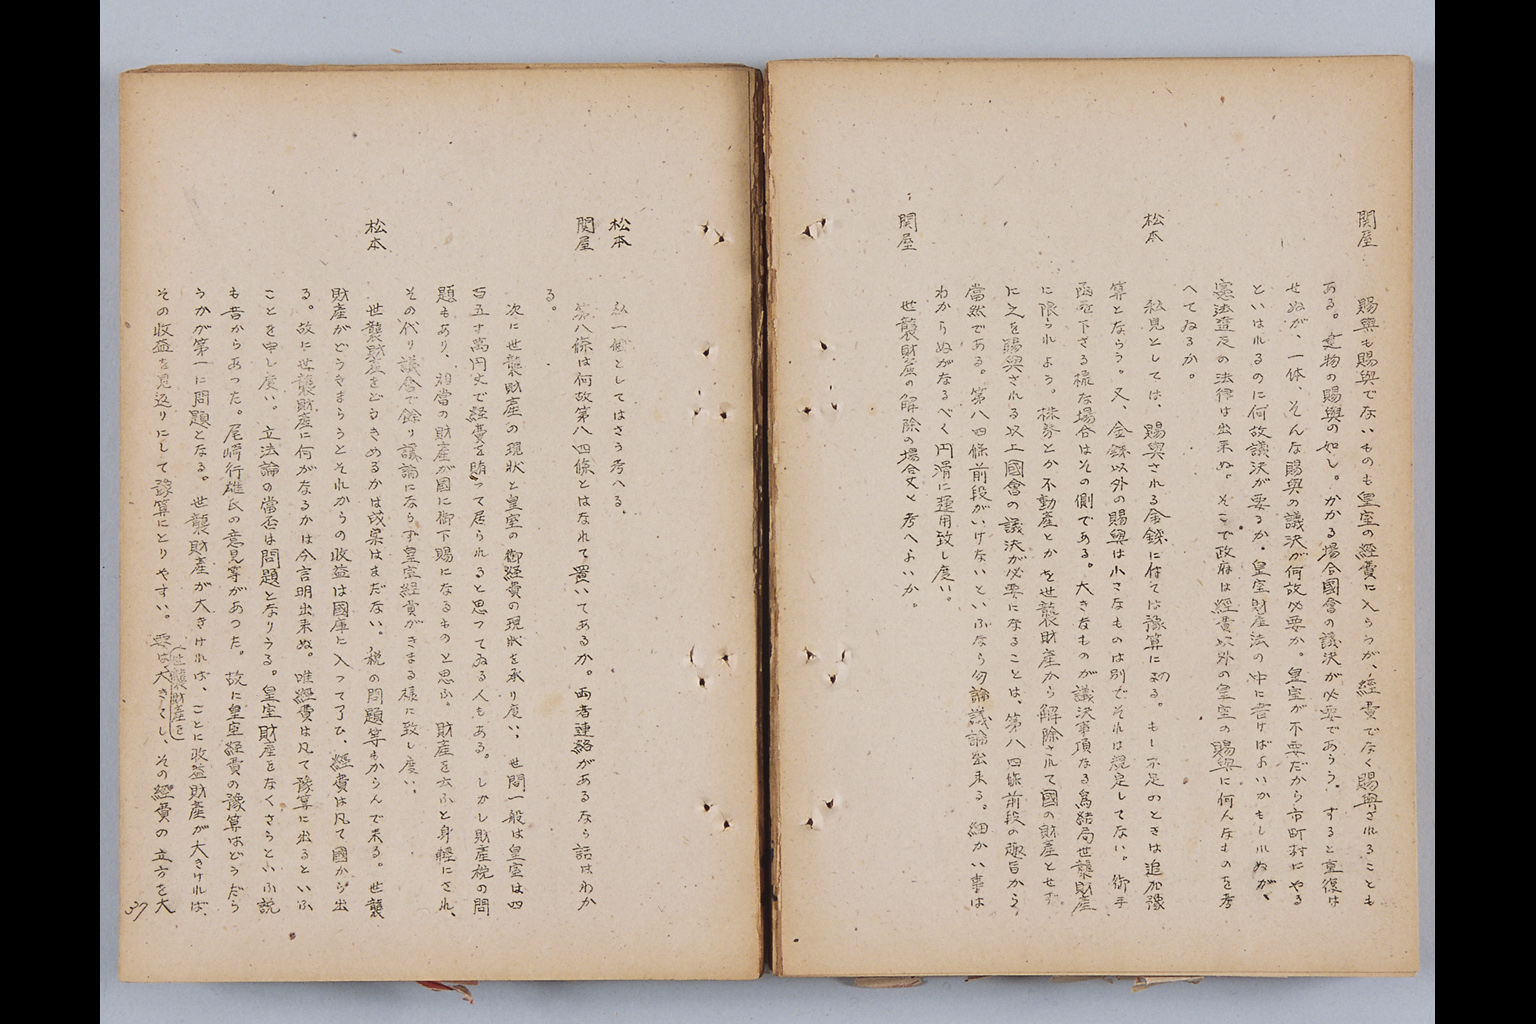 関屋　賜與も賜與でないものも皇室の経費に入らうが、経費でなく賜與されることも
ある。建物の賜與の如し。かかる場合國會の議決が必要であらう。すると重復は
せぬが、一体、そんな賜與の議決が何故必要か。皇室が不要だから市町村にやる
といはれるのに何故議決が要るか。皇室財産法の中に書けばよいかもしれぬが、
憲法違反の法律は出来ぬ。そこで政府は経費以外の皇室の賜與に何んなものを考
へてゐるか。
松本　私見としては、賜與される金銭に付ては豫算に初る。もし不足のときは追加豫
算とならう。又、金銭以外の賜與は小さなものは別でそれは規定してない。御手
函を下さる様な場合はその側である。大きなものが議決事項なる為結局世襲財産
に限られよう。株券とか不動産とかを世襲財産から解除されて國の財産とせず
に之を賜與される以上國會の議決が必要になることは、第八四條前段の趣旨から
當然である。第八四條前段がいけないといふなら勿論議論出来る。細かい事は
わからぬがなるべく円滑に運用致し度い。
関屋　世襲財産の解除の場合丈と考へよいか。
松本　私一個としてはさう考へる。
関屋　第八條は何故第八四條とはなれて置いてあるか。両者連絡があるなら話はわか
る。
次に世襲財産の現状と皇室の御経費の現状を承り度い、世間一般は皇室は四
百五十萬円丈で経費を賄って居られると思つてゐる人もある。しかし財産税の問
題もあり、相當の財産が國に御下賜になるものと思ふ。財産を云ふと身軽にされ、
その代り議會で餘り議論にならず皇室経費がきまる様に致し度い。
松本　世襲財産をどうきめるかは成案はまだない。税の問題等もからんで来る。世襲
財産がどうきまらうとそれからの収益は國庫に入って了ひ、経費は凡て國から出
る。故に世襲財産に何がなるかは今言明出来ぬ。唯経費は凡て豫算に出るといふ
ことを申し度い。立法論の當否は問題となりうる。皇室財産をなくさうといふ説
も昔からあった。尾崎行雄氏の意見等があつた。故に皇室経費の豫算はどうだら
うかが第一に問題となる。世襲財産が大きければ、ことに収益財産が大きければ、
その収益を見返りにして豫算にとりやすい。要は（世襲財産を）大きくし、その経費の立方を大
37